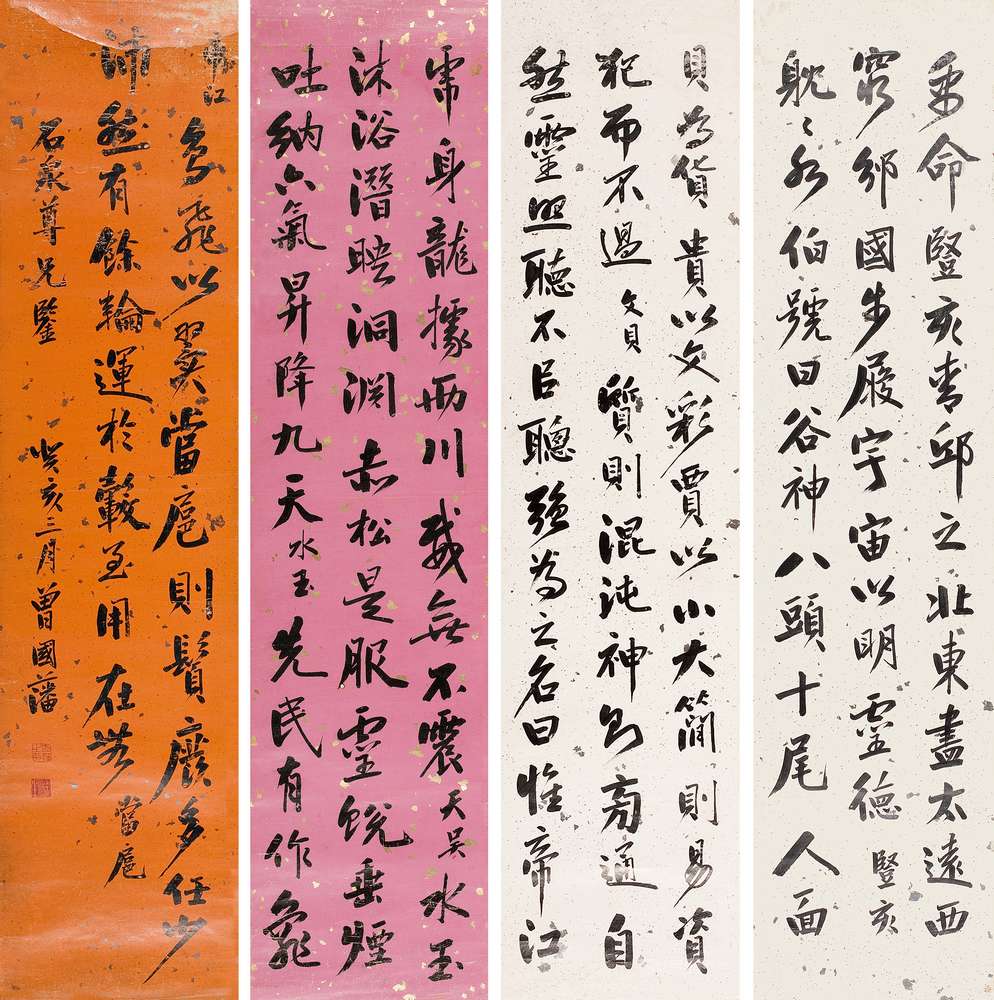 禹命豎亥青邱之北東盡太遠西
窮邠國步履宇宙以明靈德 豎亥
耽〻水伯號曰谷神八頭十尾人面
貝為貨貴以文彩賈以小大簡則易資
犯而不過 文貝 質則混沌神則旁通自
然靈照聽不㠯聰強為之名曰惟帝江
虎身龍據兩川威無不震 天吳 水玉
沐浴潛映洞淵赤松是服靈蛻垂煙
吐納六氣昇降九天 水玉 先民有作龜
帝江 鳥飛以翼當扈則鬚廢多任少
沛然有餘輪運於轂至用在無 當扈
石泉尊兄鑒 癸亥三月曾國藩